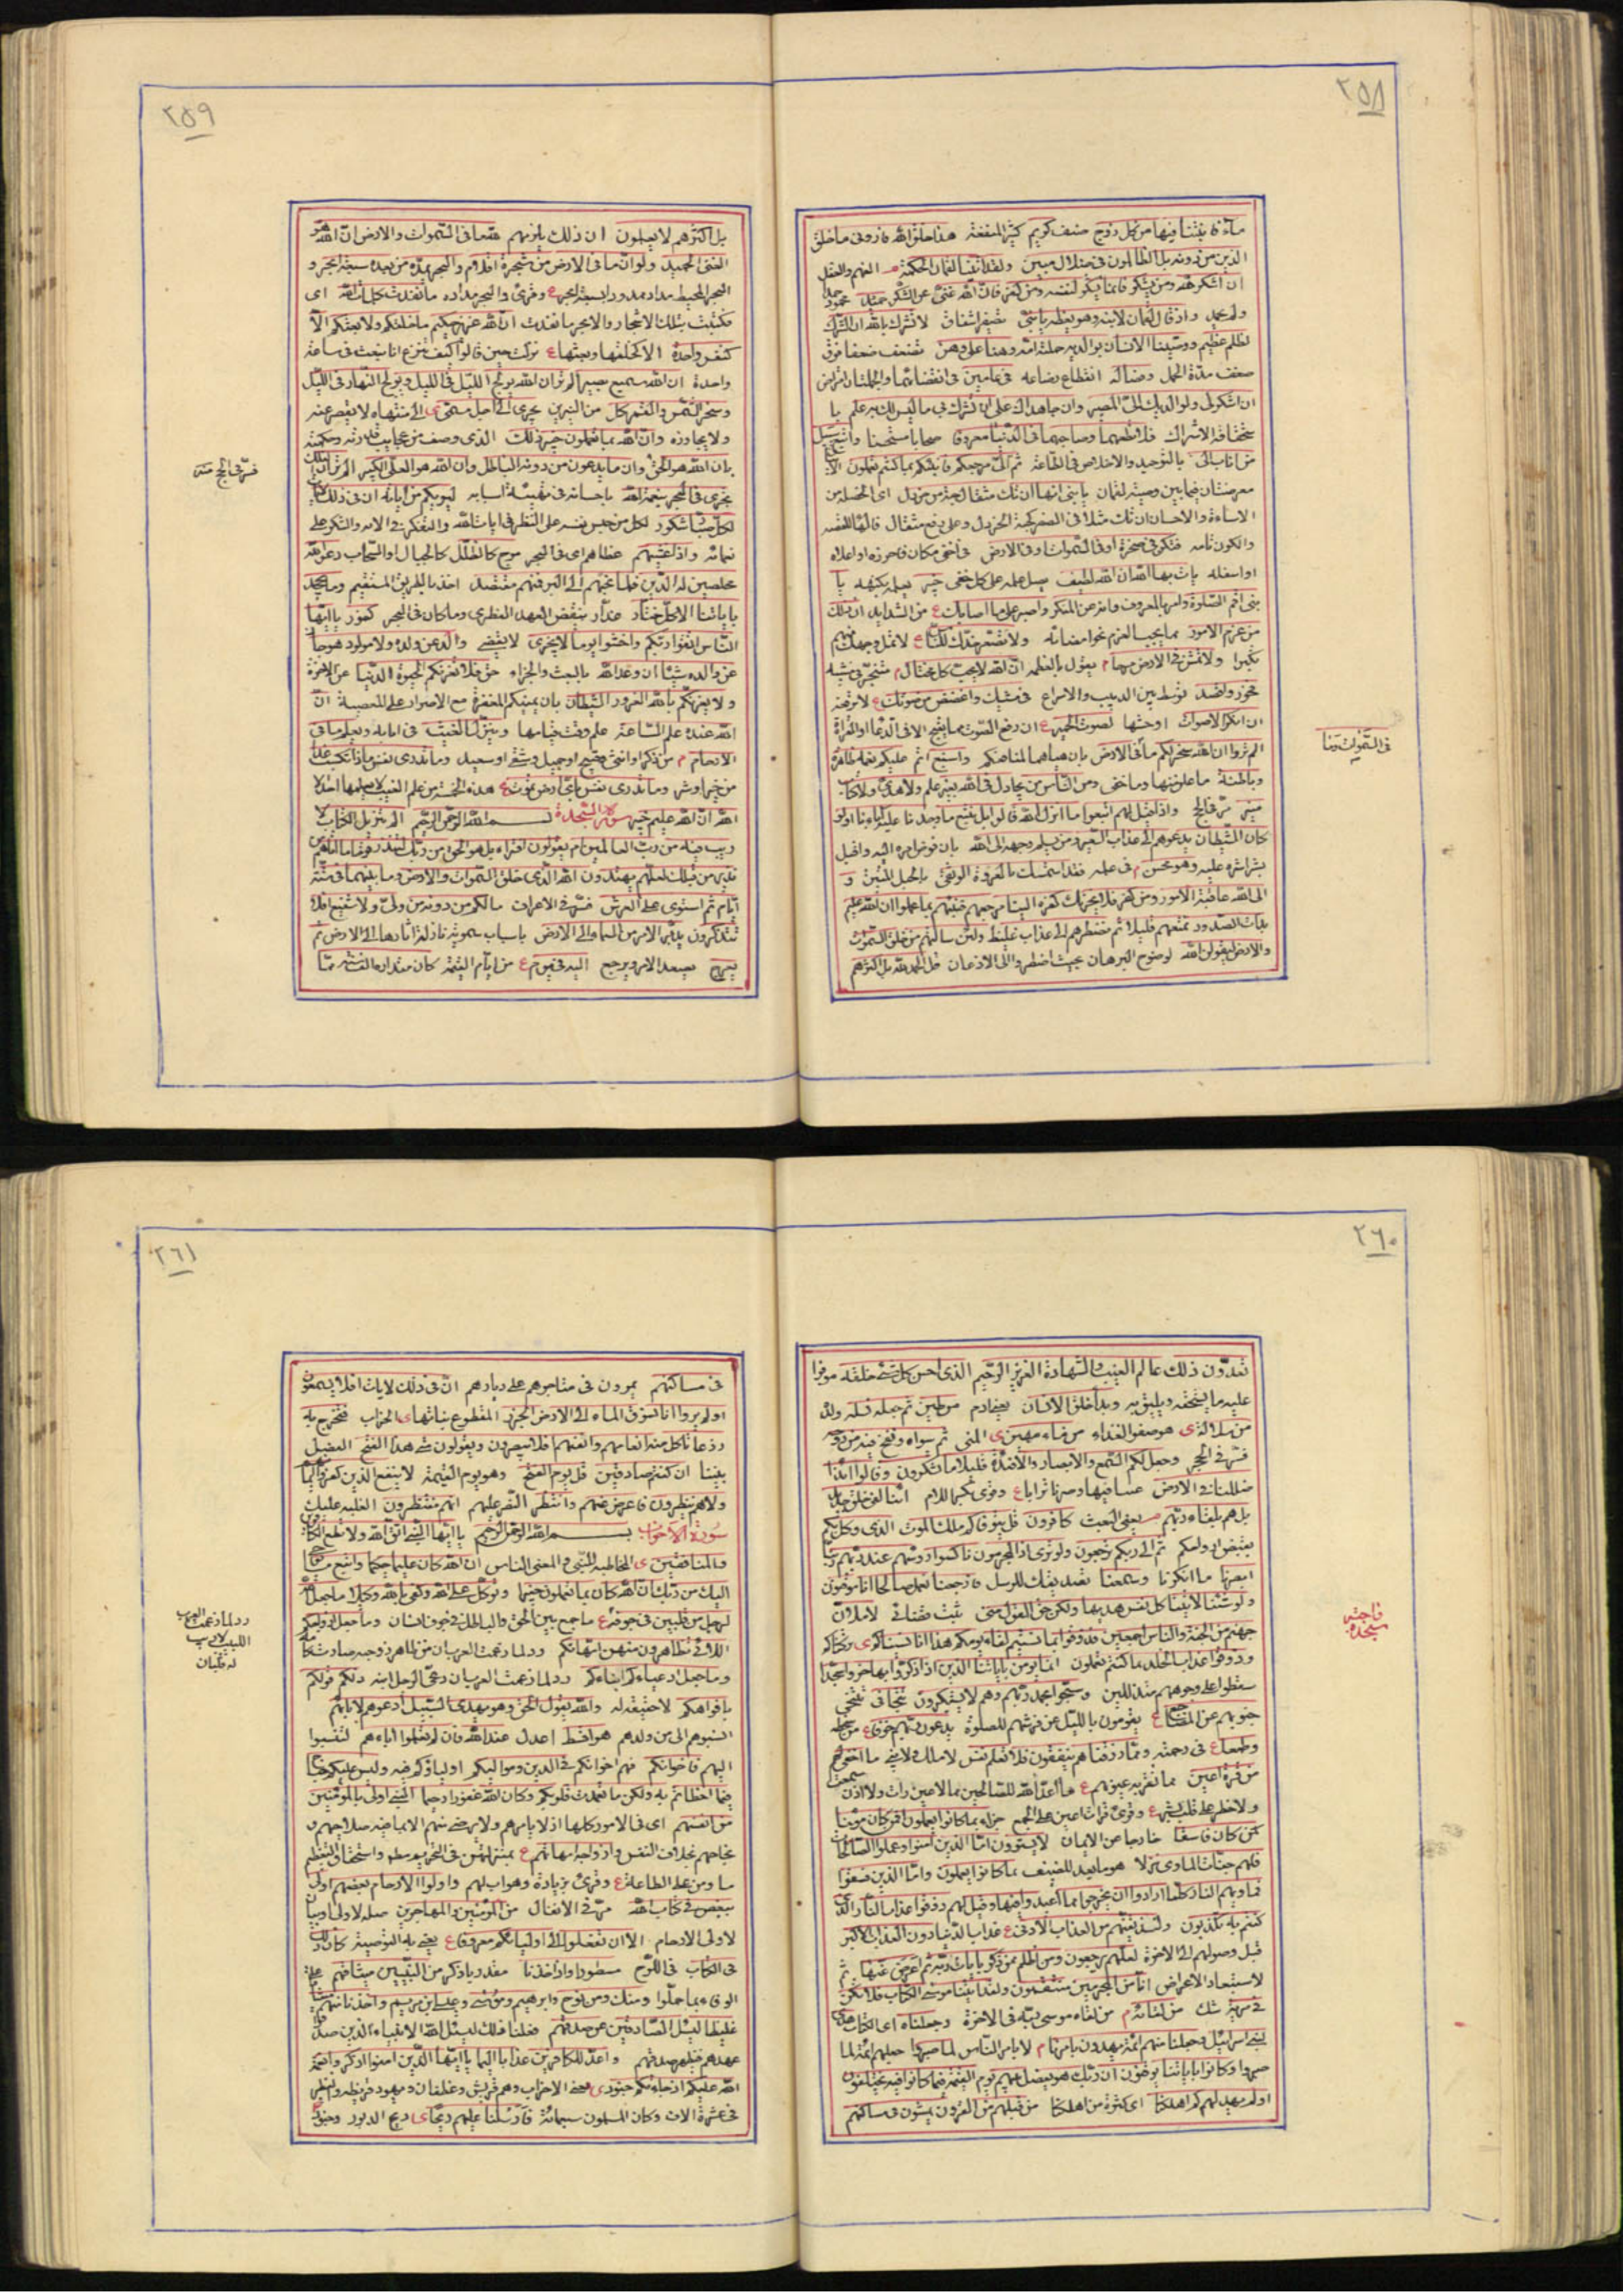 ٢٥٨
ماء فانبتنا فيها من كل زوج صنف كريم كثير المنفعة هذا خلق الله فاروني ماخلق
الذين من دونه بل الظالمون في ضلال مبين ولقد اتينا لقمان الحكمة الفهم والعقل
ان اشكر لله ومن يشكر فانما يشكر لنفسه ومن كفر فان الله غني عن الشكر حميد محمود
واذ قال لقمان لابنه وهو يعظه يابني تصغير اشفاق لا تشرك بالله ان الشرك
لظلم عظيم ووصينا الانسان بوالديه حملته امه وهنا على وهن تضعف ضعفا فوق
ضعف مدة الحمل وفصاله انقطاع رضاعه في عامين في انقضائهما
ان اشكر لي ولوالديك الي المصير وان جاهداك على ان تشرك بي ما ليس لك به علم
فلا تطعهما وصاحبهما في الدنيا معروفا صحابا مستحسنا واتبع سبيل
من اناب الي بالتوحيد والاخلاص في الطاعة ثم الي مرجعكم فانبئكم بما كنتم تعملون
معرضتان فيما بين وصية لقمان يابني انها ان تك مثقال حبة من خردل اي الخصلة من
الاساءة والاحسان ان تك مثلا في الصغر كحبة الخردل وعلى رفع مثقال
والكون تامة فتكن في صخرة او في السموات او في الارض في اخفى مكان واحرزه او اعلاه
او اسفله يات بها الله ان الله لطيف يصل علمه على كل خفي خبير يعلم بكنهه يا
بني اقم الصلوة وامر بالمعروف وانه عن المنكر واصبر على ما اصابك من الشدايد ان ذلك
من عزم الامور ولا تصعر خدك للناس لا تمل وجهك عنهم
تكبرا ولا تمش في الارض مرحا ان الله لا يحب كل مختال
فخور واقصد توسط بين الدبيب والاسراع في مشيك واغضض من صوتك
ان انكر الاصوات اوحشها لصوت الحمير
الم تروا ان الله سخر لكم ما في الارض بان هيأها لمنافعكم واسبغ اتم عليكم نعمه ظاهرة
وباطنة ما علمتموها وما خفي ومن الناس من يجادل في الله بغير علم ولا هدى ولا كتاب
منير مر في الحج واذا قيل لهم اتبعوا ما انزل الله قالوا بل نتبع ما وجدنا عليه اباءنا اولو
كان الشيطان يدعوهم الى عذاب السعير ومن يسلم وجهه الى الله بان فوض امره اليه واقبل
بشراشره عليه وهو محسن في عمله فقد استمسك بالعروة الوثقى بالحبل المتين و
الى الله عاقبة الامور ومن كفر فلا يحزنك كفره الينا مرجعهم فننبئهم بما عملوا ان الله عليم
بذات الصدور نمتعهم قليلا ثم نضطرهم الى عذاب غليظ ولئن سالتهم من خلق السموات
والارض ليقولن الله لوضوح البرهان بحيث اضطروا الى الاذعان قل الحمد لله بل اكثرهم
٢٥٩
بل اكثرهم لا يعلمون ان ذلك يلزمهم لله ما في السموات والارض ان الله هو
الغني الحميد ولو ان ما في الارض من شجرة اقلام والبحر يمده من بعده سبعة ابحر و
البحر المحيط مداد ممدود بسبعة ابحر وقرئ والبحر مداده ما نفدت كلمات الله اي
فكتبت بتلك الاشجار والابحر ما نفدت ان الله عزيز حكيم ما خلقكم ولا بعثكم الا
كنفس واحدة الا كخلقها وبعثها نزلت حين قالوا كيف انا نبعث في ساعة
واحدة ان الله سميع بصير الم تر ان الله يولج الليل في ويولج النهار في الليل
وسخر الشمس والقمر كل من النيرين يجري الى اجل مسمى الى منتهاه لا يقصر عنه
ولا يجاوزه وان الله بما تعملون خبير ذلك الذي وصف من عجايب قدرته وحكمته
بان الله هو الحق وان ما يدعون من دونه الباطل وان الله هو العلي الكبير الم تر ان الفلك
تجري في البحر بنعمة الله باحسانه في تهيئة اسبابه ليريكم من اياته ان في ذلك لايات
لكل صبار شكور لكل من حبس نفسه على النظر في ايات الله والتفكر في الائه والشكر على
نعمائه واذا غشيهم غطاهم اي في البحر موج كالظلل كالجبال او السحاب دعوا الله
مخلصين له الدين فلما نجيهم الى البر فمنهم مقتصد اخذ بالطريق المستقيم وما يجحد
باياتنا الا كل ختار غدار ينقض العهد الفطري وما كان في البحر كفور يا ايها
الناس اتقوا ربكم واخشوا يوما لا يجزي لا يقضي والد عن ولده ولا مولود هو جاز
عن والده شيئا ان وعد الله بالبعث والجزاء حق فلا تغرنكم الحيوة الدنيا عن الاخرة
ولا يغرنكم بالله الغرور الشيطان بان يمنيكم المغفرة مع الاصرار على المعصية ان
الله عنده علم الساعة علم وقت قيامها وينزل الغيث في ابانه ويعلم ما في
الارحام من ذكر او انثى وقبيح او جميل وشقي او سعيد وما تدري نفس ماذا تكسب غدا
من خير او شر وما تدري نفس باي ارض تموت هذه الخمسة من علم الغيب لا يعلمها احد الا
الله ان الله عليم خبير سورة السجدة بسم الله الرحمن الرحيم الم تنزيل الكتاب لا
ريب فيه من رب العالمين ام يقولون افتراه بل هو الحق من ربك لتنذر قوما ما اتاهم من
نذير من قبلك لعلهم يهتدون الله الذي خلق السموات والارض وما بينهما في ستة
ايام ثم استوى على العرش فسر في الاعراف مالكم من دونه من ولي ولا شفيع افلا
تتذكرون يدبر الامر من السماء الى الارض باسباب سموية نازلة اثارها الى الارض ثم
يعرج يصعد الامر ويرجع اليه في يوم من ايام القيمة كان مقداره الف سنة مما
في السموات وما
فسر في الحج منه
٢٦٠
تعدون ذلك عالم الغيب والشهادة العزيز الرحيم الذي احسن كل شيء خلقه موفرا
عليه ما يستحقه ويليق به وبدأ خلق الانسان يعني ادم من طين ثم جعل نسله ولده
من سلالة هو صفو الغذاء من ماء مهين المني ثم سواه ونفخ فيه من روحه
فسر في الحجر وجعل لكم السمع والابصار والافئدة قليلا ما تشكرون وقالوا ائذا
ضللنا في الارض غبنا فيها وصرنا ترابا وقرئ بكسر اللام ائنا لفي خلق جديد
بل هم بلقاء ربهم يعني البعث كافرون قل يتوفاكم ملك الموت الذي وكل بكم
بقبض ارواحكم ثم الى ربكم ترجعون ولو ترى اذ المجرمون ناكسوا رؤسهم عند ربهم ربنا
ابصرنا ما انكرنا وسمعنا تصديقك للرسل فارجعنا نعمل صالحا انا موقنون
ولو شئنا لاتينا كل نفس هديها ولكن حق القول مني ثبت قضائي لاملان
جهنم من الجنة والناس اجمعين فذوقوا بما نسيتم لقاء يومكم هذا انا نسيناكم
وذوقوا عذاب الخلد بما كنتم تعملون انما يؤمن باياتنا الذين اذا ذكروا بها خروا سجدا
سقطوا على وجوههم متذللين وسبحوا بحمد ربهم وهم لا يستكبرون تتجافى تتنحى
جنوبهم عن المضاجع يقومون بالليل عن فرشهم للصلوة يدعون ربهم خوفا من سخطه
وطمعا في رحمته ومما رزقناهم ينفقون فلا تعلم نفس لا ملك ولا نبي ما اخفي لهم
من قرة اعين مما تقر به عيونهم ما اعد الله للصالحين مما لا عين رات ولا اذن سمعت
ولا خطر على قلب بشر وقرئ قرات اعين على الجمع جزاء بما كانوا يعملون افمن كان مؤمنا
كمن كان فاسقا خارجا عن الايمان لا يستوون اما الذين امنوا وعملوا الصالحات
فلهم جنات الماوى نزلا هو ما يعد للضيف بما كانوا يعملون واما الذين فسقوا
فماويهم النار كلما ارادوا ان يخرجوا منها اعيدوا فيها وقيل لهم ذوقوا عذاب النار الذي
كنتم به تكذبون ولنذيقنهم من العذاب الادنى عذاب الدنيا دون العذاب الاكبر
قبل وصولهم الى الاخرة لعلهم يرجعون ومن اظلم ممن ذكر بايات ربه ثم اعرض عنها ثم
لاستبعاد الاعراض انا من المجرمين منتقمون ولقد اتينا موسى الكتاب فلا تكن
في مرية شك من لقائه من لقاء موسى ربه في الاخرة وجعلناه اي الكتاب هدى
لبني اسرائيل وجعلنا منهم ائمة يهدون بامرنا لا بامر الناس لما صبروا جعلهم ائمة لما
صبروا وكانوا باياتنا يوقنون ان ربك هو يفصل بينهم يوم القيمة فيما كانوا فيه يختلفون
اولم يهد لهم كم اهلكنا اي كثرة من اهلكنا من قبلهم من القرون يمشون في مساكنهم
سجدة واجبة
٢٦١
في مساكنهم يمرون في متاجرهم على ديارهم ان في ذلك لايات افلا يسمعون
اولم يروا انا نسوق الماء الى الارض الجرز المقطوع نباتها الخراب فنخرج به
زرعا تاكل منه انعامهم وانفسهم افلا يبصرون ويقولون متى هذا الفتح الفصل
بيننا ان كنتم صادقين قل يوم الفتح وهو يوم القيمة لا ينفع الذين كفروا ايمانهم
ولا هم ينظرون فاعرض عنهم وانتظر النصر عليهم انهم منتظرون الغلبة عليك
سورة الاحزاب بسم الله الرحمن الرحيم يا ايها النبي اتق الله ولا تطع الكافرين
والمنافقين المخاطبة للنبي والمعنى الناس ان الله كان عليما حكيما واتبع ما يوحى
اليك من ربك ان الله كان بما تعملون خبيرا وتوكل على الله وكفى بالله وكيلا ما جعل الله
لرجل من قلبين في جوفه ما جمع بين الحق والباطل في جوف انسان وما جعل ازواجكم
اللائي تظاهرون منهن امهاتكم رد لما زعمت العرب ان من ظاهر زوجه صارت كامه
وما جعل ادعياءكم ابناءكم رد لما زعمت العرب ان دعي الرجل ابنه ذلكم قولكم
بافواهكم لا حقيقة له والله يقول الحق وهو يهدي السبيل ادعوهم لابائهم
انسبوهم الى من ولدهم هو اقسط اعدل عند الله فان لم تعلموا اباءهم لتنسبوا
اليهم فاخوانكم فهم اخوانكم في الدين ومواليكم اولياؤكم فيه وليس عليكم جناح
فيما اخطاتم به ولكن ما تعمدت قلوبكم وكان الله غفورا رحيما النبي اولى بالمؤمنين
من انفسهم اي في الامور كلها اذ لا يامرهم ولا يرضى منهم الا بما فيه صلاحهم و
نجاحهم بخلاف النفس وازواجه امهاتهم بمنزلتهن في التحريم مطلقا واستحقاق التعظيم
ما دمن على الطاعة وقرئ بزيادة وهو اب لهم واولوا الارحام بعضهم اولى
ببعض في كتاب الله مر في الانفال من المؤمنين والمهاجرين صلة لاولى او بيان
لاولي الارحام الا ان تفعلوا الى اوليائكم معروفا يعني به التوصية كان ذلك
في الكتاب في اللوح مسطورا واذ اخذنا مقدر باذكر من النبيين ميثاقهم على
الوفاء بما حملوا ومنك ومن نوح وابرهيم وموسى وعيسى ابن مريم واخذنا منهم ميثاقا
غليظا ليسئل الصادقين عن صدقهم فعلنا ذلك ليسئل الله الانبياء الذين صدقوا
عهدهم صدقهم واعد للكافرين عذابا اليما يا ايها الذين امنوا اذكروا نعمة
الله عليكم اذ جاءتكم جنود يعني الاحزاب وهم قريش وغطفان ويهود قريظة والنضير
في عشرة الاف وكان المسلمون سبعمائة فارسلنا عليهم ريحا ريح الدبور وجنودا
رد لما زعمت العرب
اللبيب
له قلبان